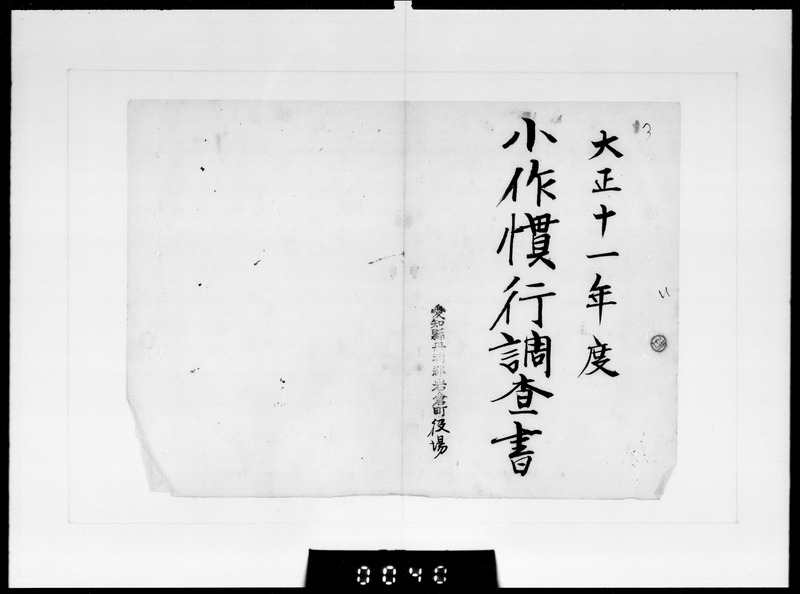 大正十一年度
小作慣行調査書
愛知縣丹羽郡岩倉町役場
3
0040